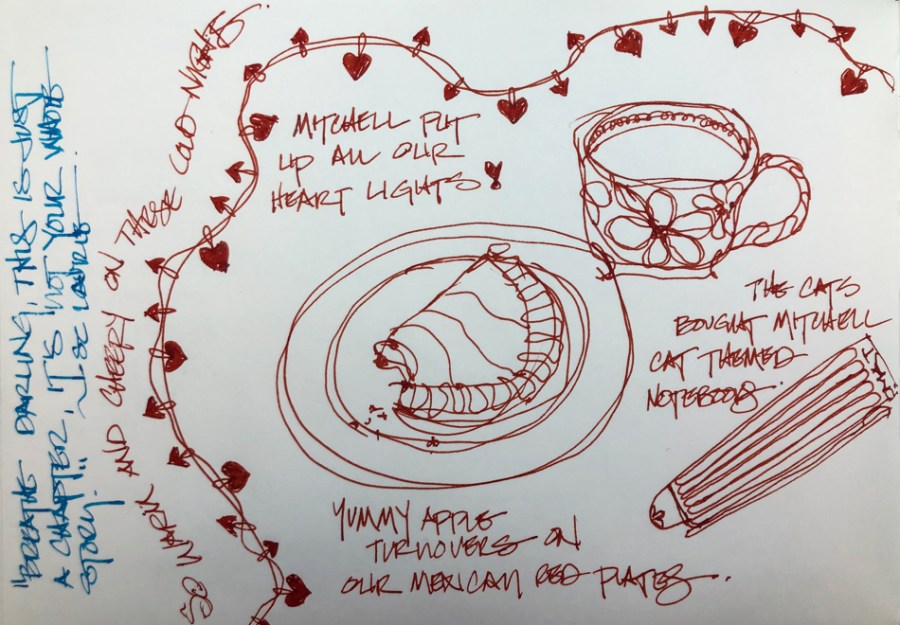 "BREATHE DARLING, THIS IS JUST
A CHAPTER, IT'S NOT YOUR WHOLE
STORY." ~ SC LOURIE
SO WARM AND CHEERY ON THESE COLD NIGHTS.
MITCHELL PUT
UP ALL OUR
HEART LIGHTS!
THE CATS
BOUGHT MITCHELL
CAT THEMED
NOTEBOOKS.
YUMMY APPLE
TURNOVERS ON
OUR MEXICAN RED PLATES.